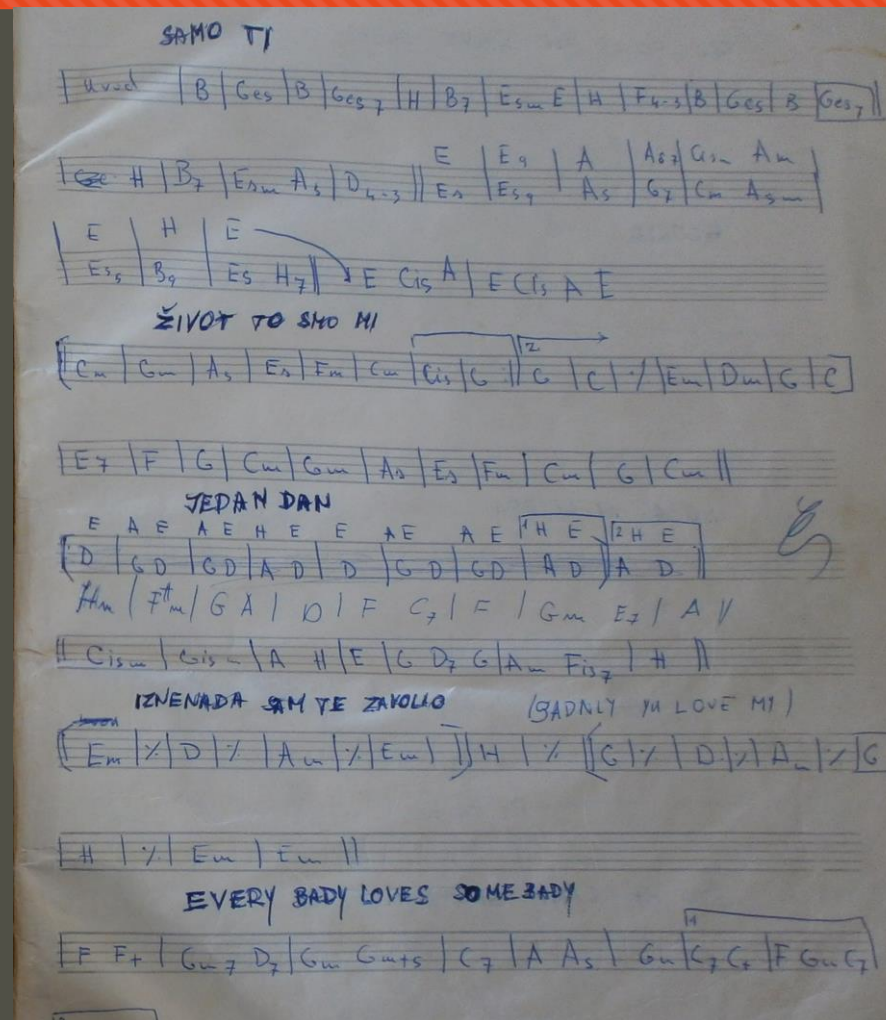 SAMO TI
| Uvod | B | Ges | B | Ges7 | H | B7 | Esm E | H | F4-3 | B | Ges | B | Ges7 ||
E | E9 | A | As7 | Cism Am |
| H | B7 | Esm As | D4-3 || Es | Es9 | As | G7 | Cm Asm |
| E | H | E
| Es5 | B9 | Es H7 || E Cis A | E Cis A E
ŽIVOT TO SMO MI
2
| Cm | Gm | As | Es | Fm | Cm | Cis | G :|| G | C | ٪ | Em | Dm | G | C |
| E7 | F | G | Cm | Gm | As | Es | Fm | Cm | G | Cm ||
JEDAN DAN
E A E A E H E E A E A E 1 H E 2 H E
| D | G D | G D | A D | D | G D | G D | A D | A D ||
Hm | F#m | G A | D | F C7 | F | Gm E7 | A ||
|| Cism | Gism | A H | E | G D7 G | Am Fis7 | H ||
IZNENADA SAM TE ZAVOLIO (BADNLY YU LOVE MY)
| Em | ٪ | D | ٪ | Am | ٪ | Em | || H | ٪ || G | ٪ | D | ٪ | Am | ٪ | G
| H | ٪ | Em | Em ||
EVERY BADY LOVES SOMEBADY
| F F+ | Gm7 D7 | Gm Gm+5 | C7 | A As | Gm | C7 C+ | F Gm C7 |